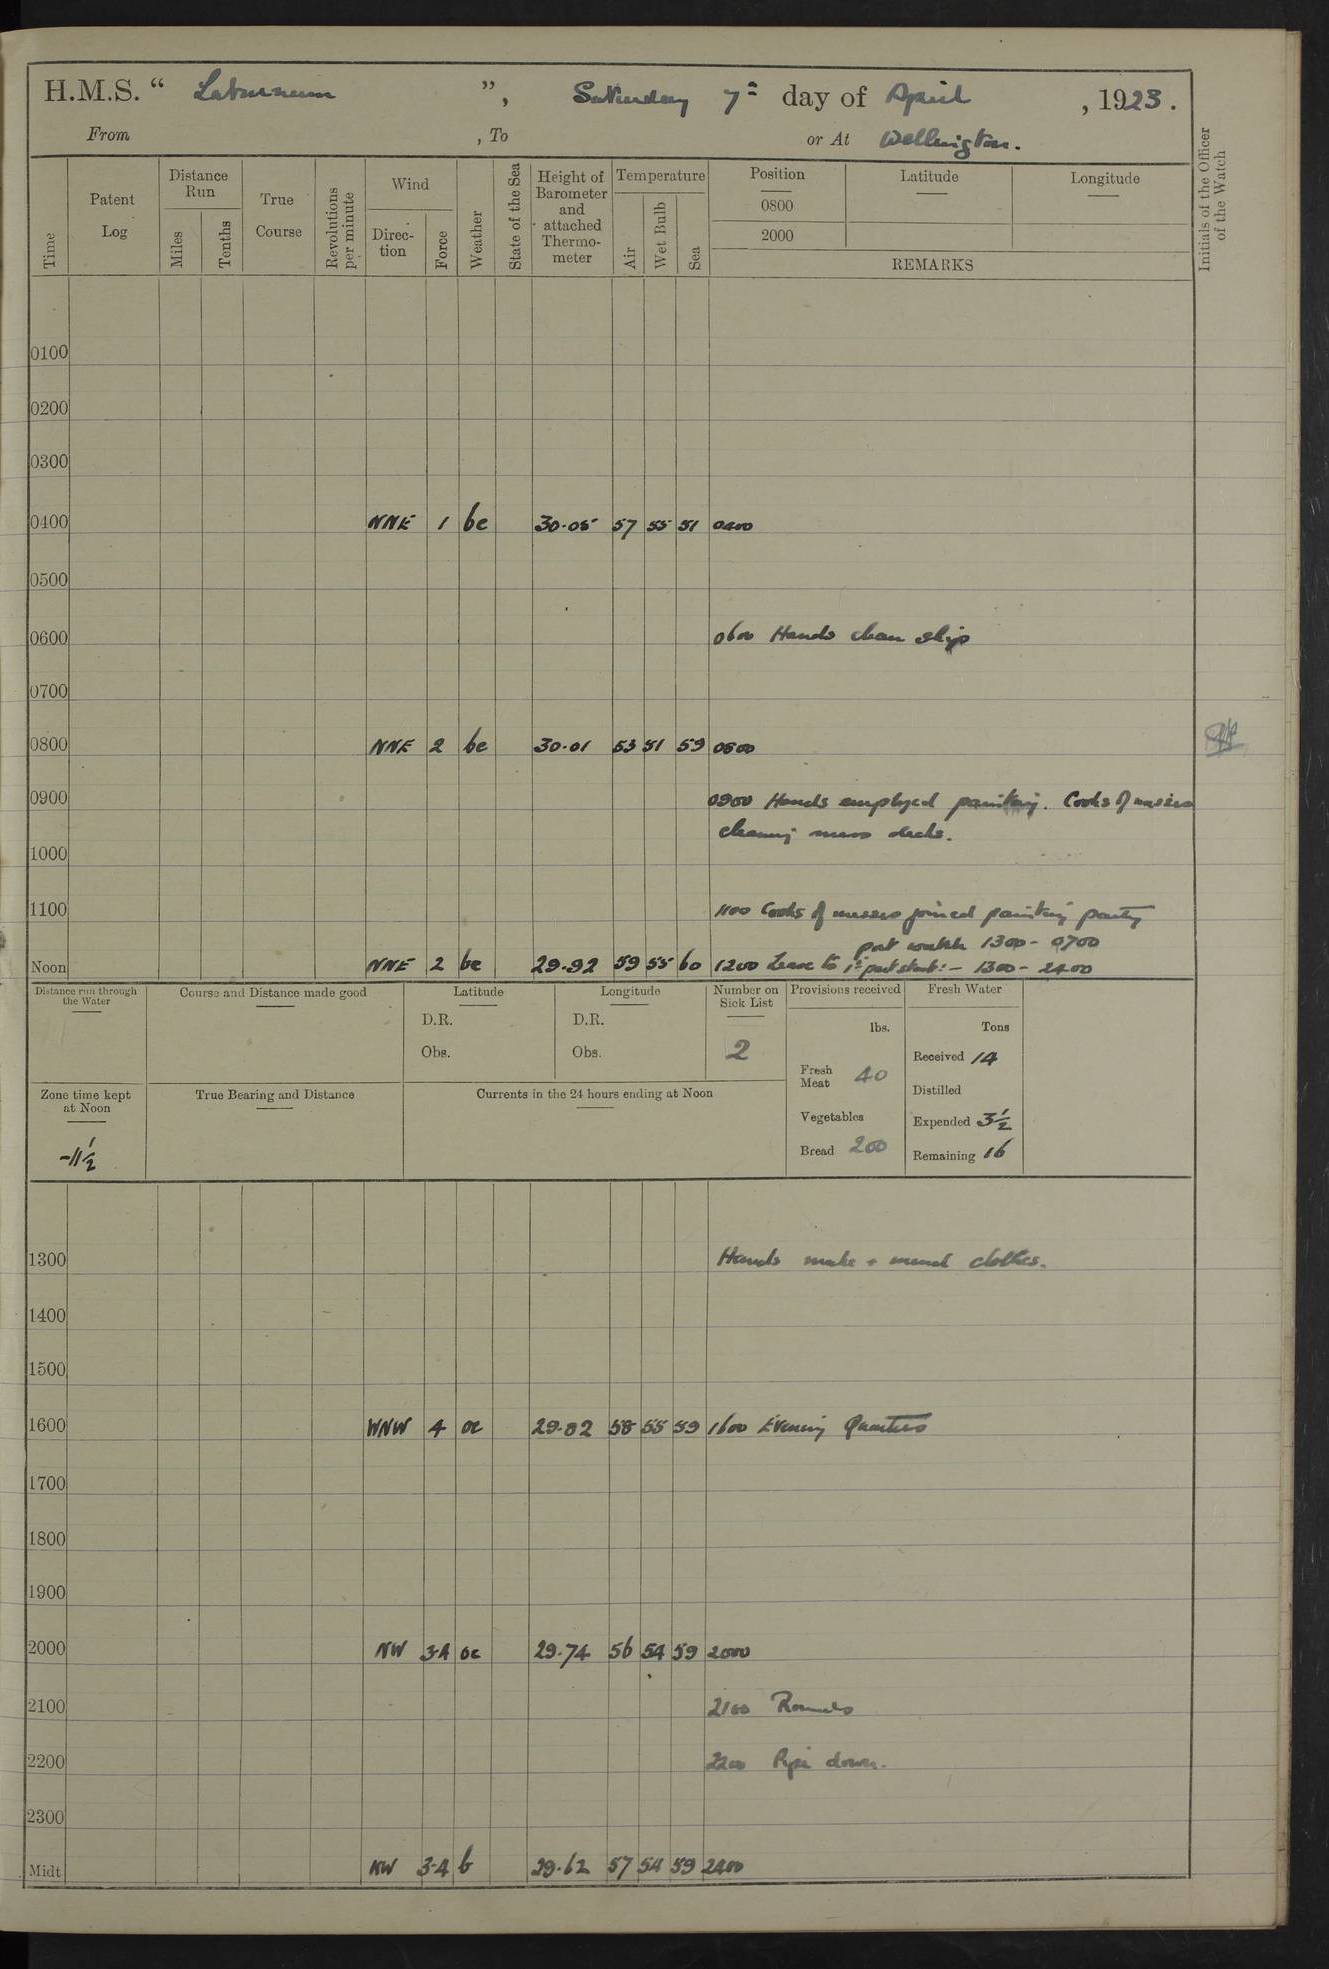 H.M.S. “ Laburnum ”, Saturday 7th day of April , 1923.
From , To or At Wellington.
Time
Patent Log
Distance Run
Miles
Tenths
True Course
Revolutions per minute
Wind
Direction
Force
Weather
State of the Sea
Height of Barometer and attached Thermometer
Temperature
Air
Wet Bulb
Sea
Position
0800
2000
Latitude
Longitude
REMARKS
Initials of the Officer of the Watch
0100
0200
0300
0400 NNE 1 bc 30.05 57 55 51 0400
0500
0600 0600 Hands clean ship
0700
0800 NNE 2 bc 30.01 53 51 59 0800
0900 0900 Hands employed painting. Cooks of messes
cleaning mess decks.
1000
1100 1100 Cooks of messes joined painting party
port watch 1300 - 0700
Noon NNE 2 bc 29.92 59 55 60 1200 Leave to 1st part starb: - 1300 - 2400
Distance run through the Water
Course and Distance made good
Latitude
D.R.
Obs.
Longitude
D.R.
Obs.
Number on Sick List
2
Provisions received
lbs.
Fresh Meat 40
Vegetables
Bread 200
Fresh Water
Tons
Received 14
Distilled
Expended 3½
Remaining 16
Zone time kept at Noon
-11½
True Bearing and Distance
Currents in the 24 hours ending at Noon
1300 Hands make + mend clothes.
1400
1500
1600 WNW 4 oc 29.82 58 55 59 1600 Evening Quarters
1700
1800
1900
2000 NW 3-4 oc 29.74 56 54 59 2000
2100 2100 Rounds
2200 2200 Pipe down.
2300
Midt NW 3-4 b 29.62 57 54 59 2400